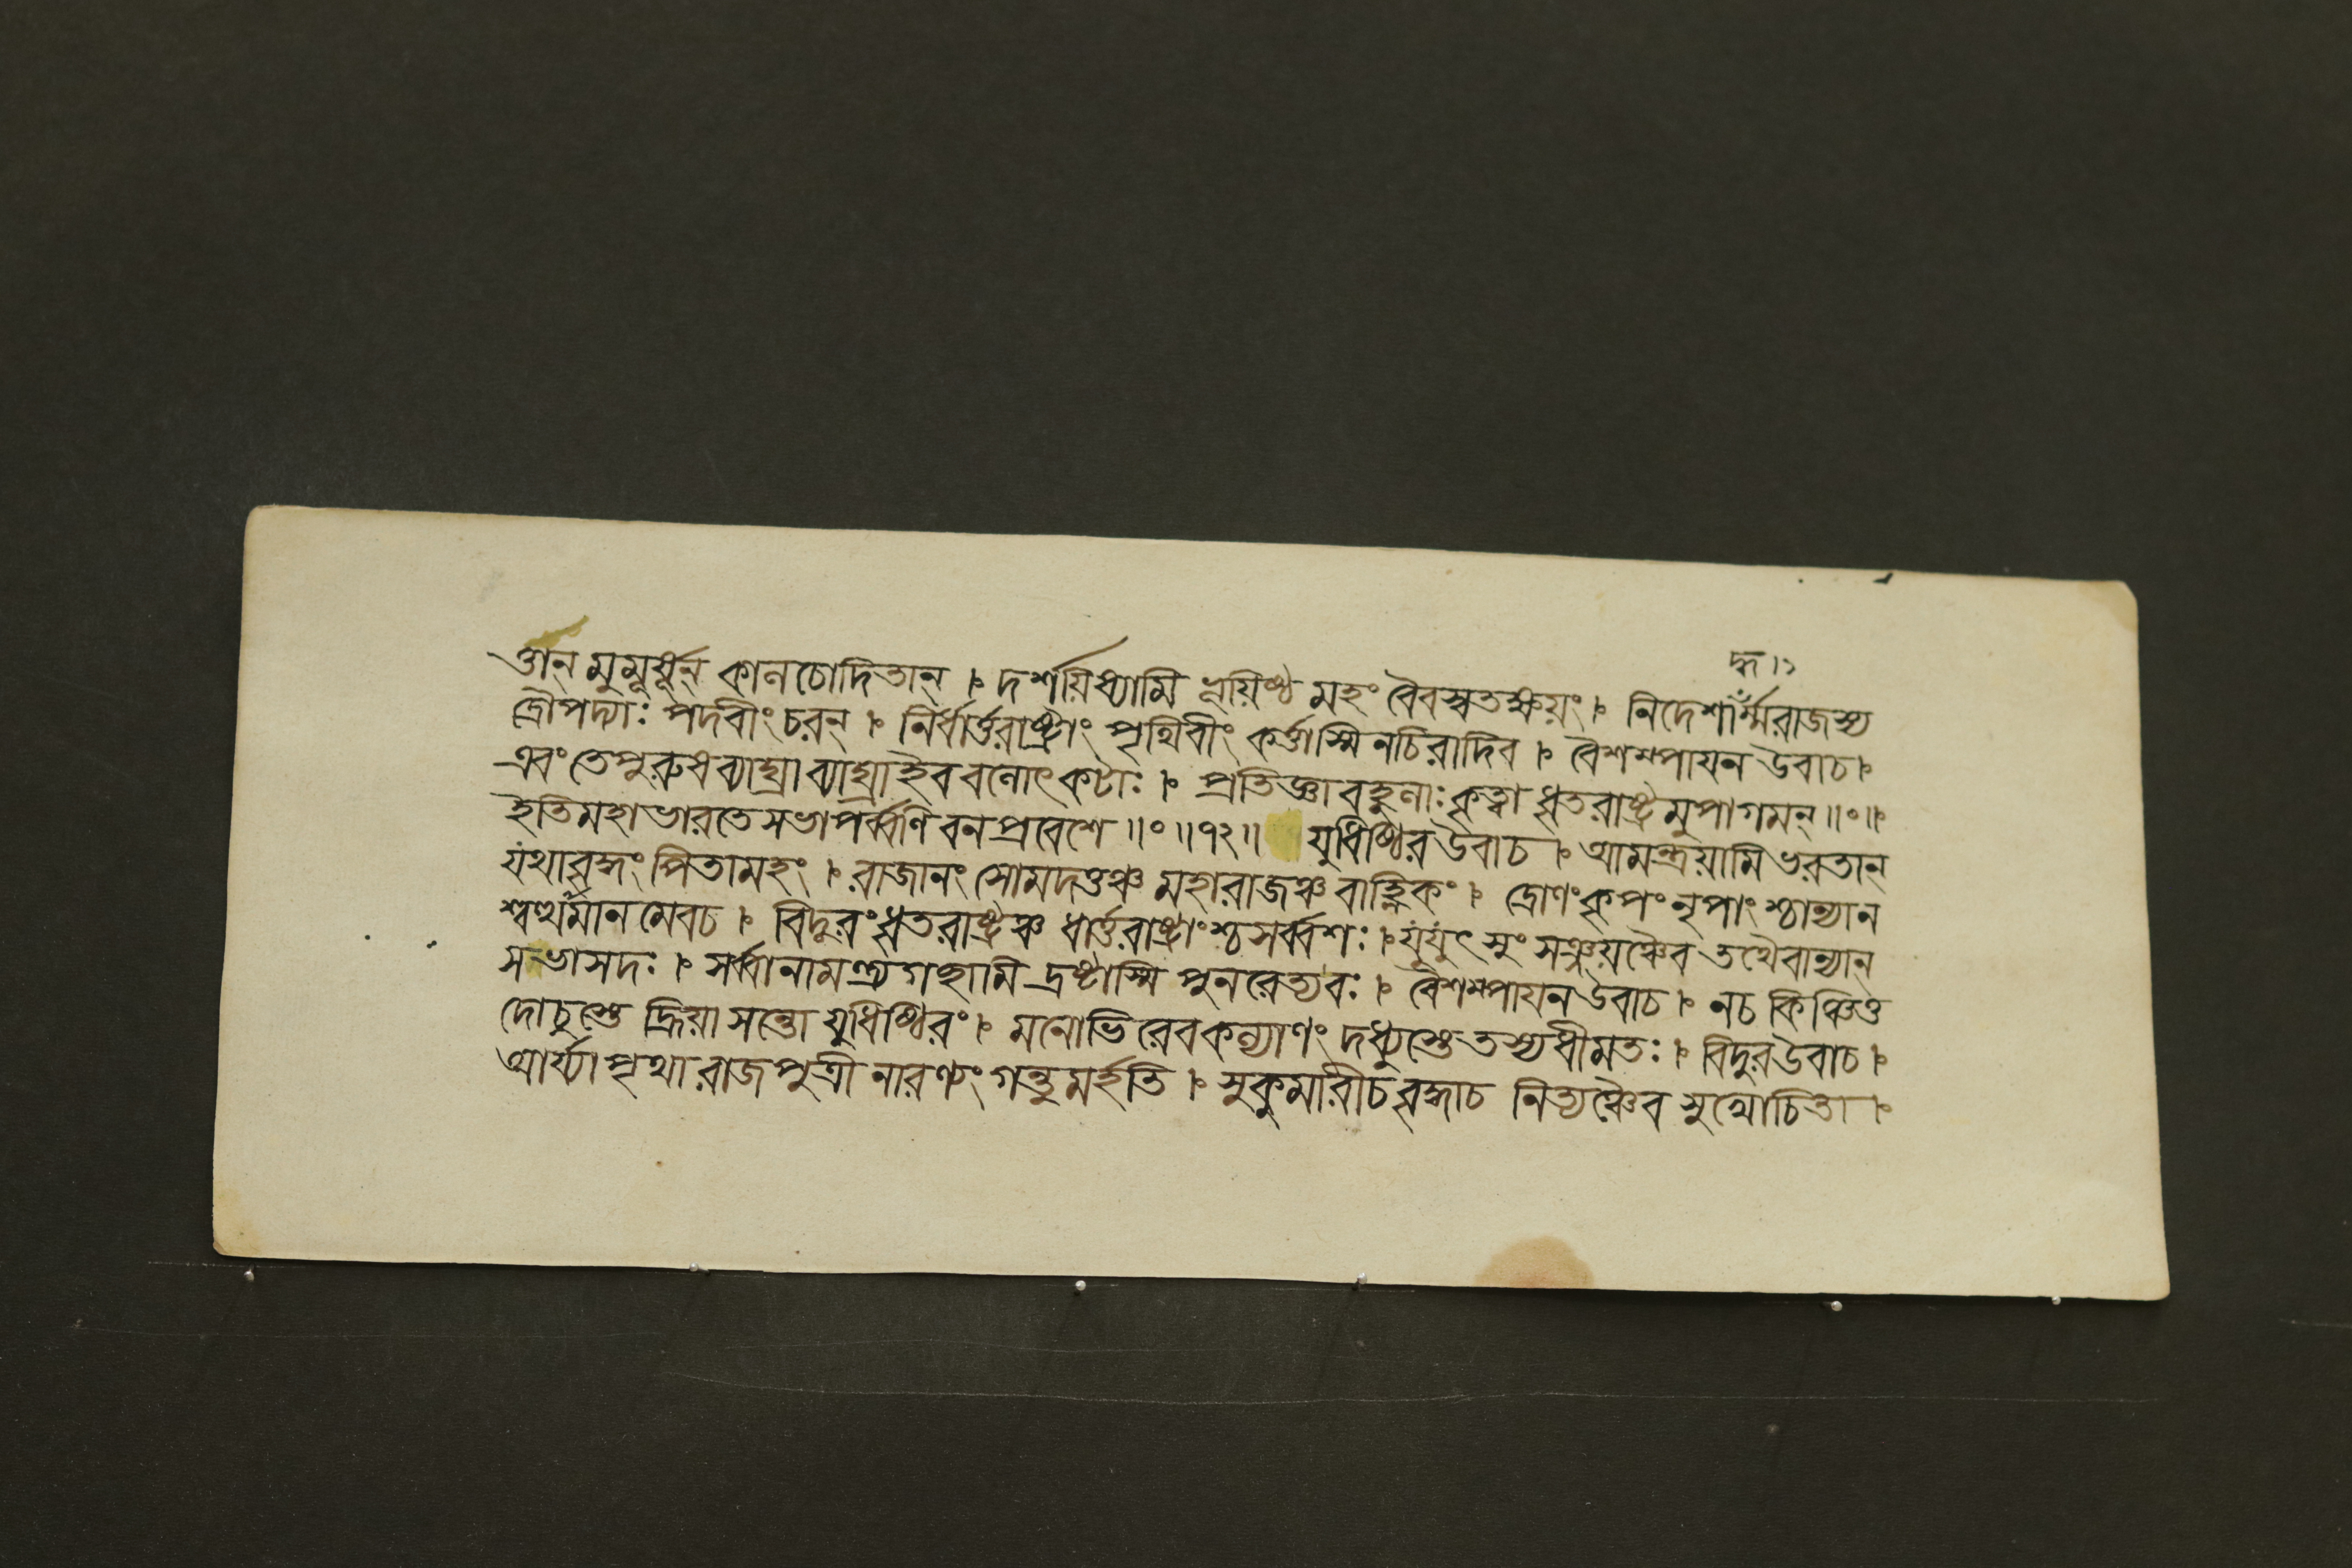 দ্ধ।১
র্ত্তান্ মুমূর্ষূন্ কালচোদিতান্ ৷ দর্শয়িষ্যামি ভূয়িষ্ঠ মহং বৈবস্বতক্ষয়ং ৷ নিদেশার্ম্মরাজস্য
দ্রৌপদ্যাঃ পদবীংচরন্ ৷ নির্ধার্ত্তরাষ্ট্রাং পৃথিবীং কর্ত্তাস্মিনচিরাদিব ৷ বৈশম্পায়ন উবাচ ৷
এবংতেপুরুষব্যাঘ্রা ব্যাঘ্রাইব বনোৎকটাঃ ৷ প্রতিজ্ঞা বহুলাঃ কৃত্বা ধৃতরাষ্ট্রমুপাগমন্ ॥०॥
ইতিমহাভারতে সভাপর্ব্বণি বনপ্রবেশে ॥०॥৭২॥ যুধিষ্ঠির উবাচ ৷ আমন্ত্রয়ামি ভরতান্
যংথাবৃদ্ধং পিতামহং ৷ রাজানং সোমদত্তঞ্চ মহারাজঞ্চ বাহ্লিকং ৷ দ্রোণংকৃপং নৃপাংশ্চান্যান
শ্বত্থামান মেবচ ৷ বিদুরংধৃতরাষ্ট্রঞ্চ ধার্ত্তরাষ্ট্রাংশ্চসর্ব্বশঃ ৷ যুযুৎসুং সঞ্জয়ঞ্চৈব তথৈবান্যান্
সভাসদঃ ৷ সর্ব্বানামন্ত্র্যগচ্ছামি দ্রষ্টাস্মি পুনরেত্যবঃ ৷ বৈশম্পায়নউবাচ ৷ নচ কিঞ্চিত্ত
দোচুস্তে হ্রিয়াসন্তো যুধিষ্ঠিরং ৷ মনোভিরেবকল্যাণং দধ্যুস্তেতস্যধীমতঃ ৷ বিদুরউবাচ ৷
আর্য্যা পৃথারাজপুত্রী নারণ্যং গন্তুমর্হতি ৷ সুকুমারীচ বৃদ্ধাচ নিত্যঞ্চৈব সুখোচিতা ৷